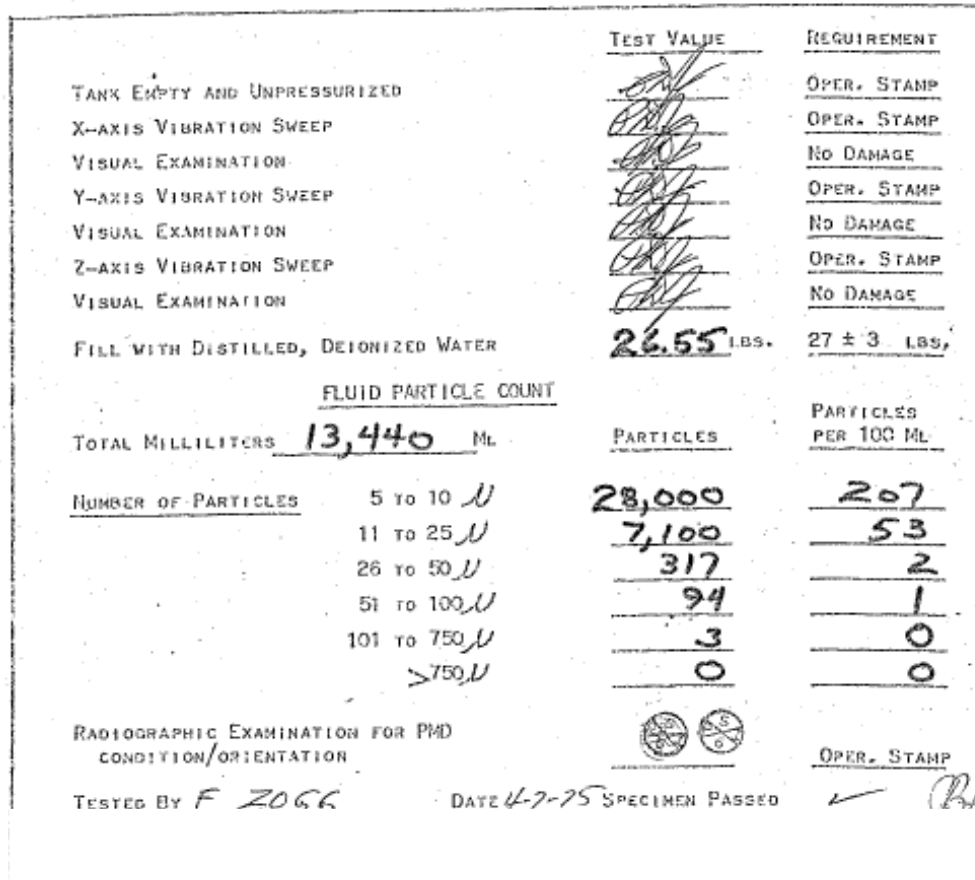 TEST VALUE REQUIREMENT
TANK EMPTY AND UNPRESSURIZED OPER. STAMP
X-AXIS VIBRATION SWEEP OPER. STAMP
VISUAL EXAMINATION NO DAMAGE
Y-AXIS VIBRATION SWEEP OPER. STAMP
VISUAL EXAMINATION NO DAMAGE
Z-AXIS VIBRATION SWEEP OPER. STAMP
VISUAL EXAMINATION NO DAMAGE
FILL WITH DISTILLED, DEIONIZED WATER 26.55 LBS. 27 ± 3 LBS.
FLUID PARTICLE COUNT
TOTAL MILLILITERS 13,440 ML PARTICLES PARTICLES PER 100 ML
NUMBER OF PARTICLES 5 TO 10 µ 28,000 207
11 TO 25 µ 7,100 53
26 TO 50 µ 317 2
51 TO 100 µ 94 1
101 TO 750 µ 3 0
>750 µ 0 0
RADIOGRAPHIC EXAMINATION FOR PMD
CONDITION/ORIENTATION OPER. STAMP
TESTED BY F ZOGG DATE 4-7-75 SPECIMEN PASSED ✓